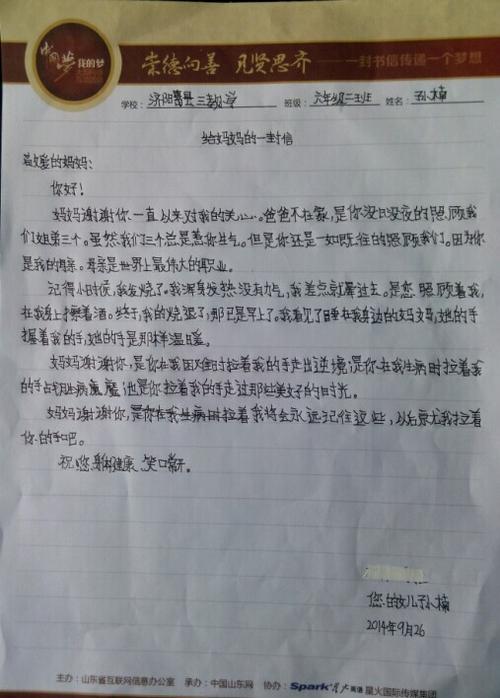 中国梦 我的梦
崇德向善 见贤思齐 一封书信传递一个梦想
学校：济阳县三教小学 班级：六年级二班 姓名：孙小楠
给妈妈的一封信
最爱的妈妈：
你好！
妈妈谢谢你一直以来对我的关心。爸爸不在家，是你没日没夜的照顾我
们姐弟三个。虽然我们三个总是惹你生气。但是你还是一如既往的照顾我们。因为你
是我的母亲。母亲是世界上最伟大的职业。
记得小时侯，我发烧了。我浑身发热没有力气，我差点就晕过去。是您照顾着我，
在我身上擦着酒。终于，我的烧退了，那已是早上了。我看见了睡在我身边的妈妈，她的手
握着我的手，她的手是那样温暖。
妈妈谢谢你，是你在我困难时拉着我的手走出逆境；是你在我生病时拉着我
的手战胜病魔；也是你拉着我的手走过那些美好的时光。
妈妈谢谢你，是你在我生病时拉着我将会永远记住这些，以后换我拉着
你的手吧。
祝您身体健康，笑口常开。
您的女儿小楠
2014年9月26
主办：山东省互联网信息办公室 承办：中国山东网 协办：Spark星火英语 星火国际传媒集团